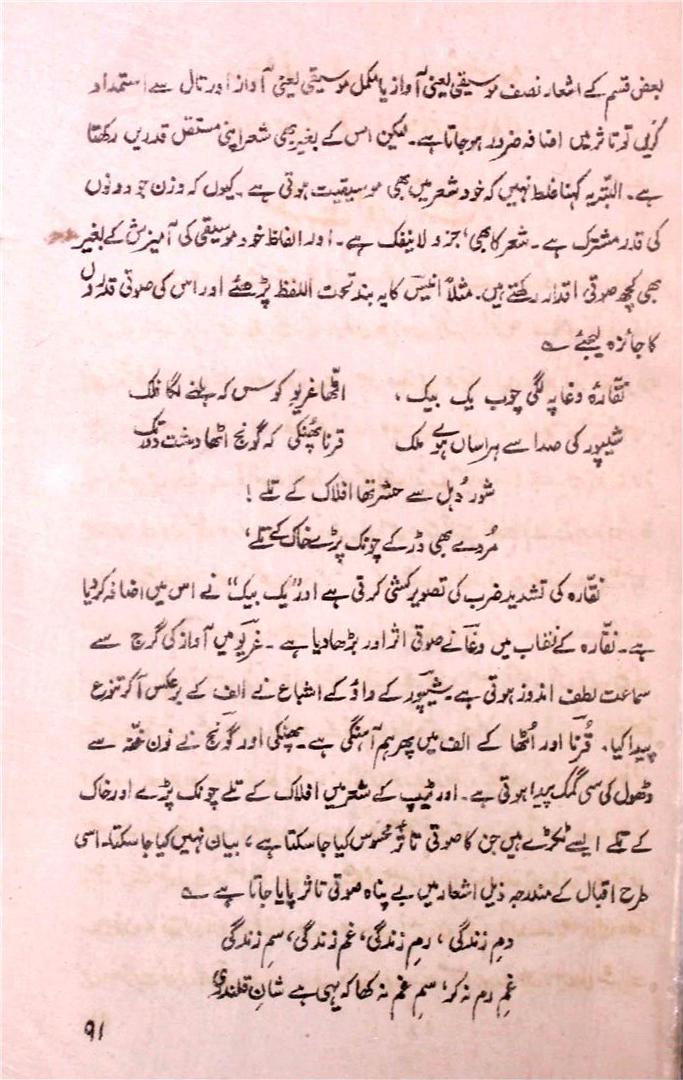 بعض قسم کے اشعار نصف موسیقی یعنی آواز یا مکمل موسیقی یعنی آواز اور تال سے استمداد
کریں تو تاثر میں اضافہ ضرور ہو جاتا ہے۔ لیکن اس کے بغیر بھی شعر اپنی مستقل قدریں رکھتا
ہے۔ البتہ یہ کہنا غلط نہیں کہ خود شعر میں بھی موسیقیت ہوتی ہے۔ کیوں کہ وزن جو دونوں
کی قدر مشترک ہے۔ شعر کا بھی، جزو لا ینفک ہے۔ اور الفاظ خود موسیقی کی آمیزش کے بغیر
بھی کچھ صوتی اقدار رکھتے ہیں۔ مثلاً انیسؔ کا یہ بند تحت اللفظ پڑھئے اور اس کی صوتی قدروں
کا جائزہ لیجئے ؎
نقّارۂ وغا پہ لگی چوب یک بیک، اٹھا غریوِ کوس کہ ہلنے لگا فلک
شیپور کی صدا سے ہراساں ہوئے ملک قرنا پُھنکی کہ گونج اٹھا دشت دور تک
شورِ دُہل سے حشر تھا افلاک کے تلے!
مُردے بھی ڈر کے چونک پڑے خاک کے تلے،
نقّارہ کی تشدید ضرب کی تصویر کشی کرتی ہے اور "یک بیک" نے اس میں اضافہ کر دیا
ہے۔ نقّارہ کے نقاب میں وغا نے صوتی اثر اور بڑھا دیا ہے۔ غریو میں آواز کی گرج سے
سماعت لطف اندوز ہوتی ہے۔ شیپور کے واؤ کے اشباع نے الف کے برعکس آ کر تنوع
پیدا کیا۔ قُرنا اور اُٹھا کے الف میں پھر ہم آہنگی ہے۔ پھنکی اور گونج نے نون غنّہ سے
ڈھول کی سی گمک پیدا ہوتی ہے۔ اور ٹیپ کے شعر میں افلاک کے تلے چونک پڑے اور خاک
کے تلے ایسے ٹکڑے ہیں جن کا صوتی تاثر محسوس کیا جا سکتا ہے، بیان نہیں کیا جا سکتا۔ اسی
طرح اقبال کے مندرجہ ذیل اشعار میں بے پناہ صوتی تاثر پایا جاتا ہے ؎
دمِ زندگی، رمِ زندگی، غمِ زندگی، سمِ زندگی
غمِ رم نہ کر، سمِ غم نہ کھا کہ یہی ہے شانِ قلندری
۹۱